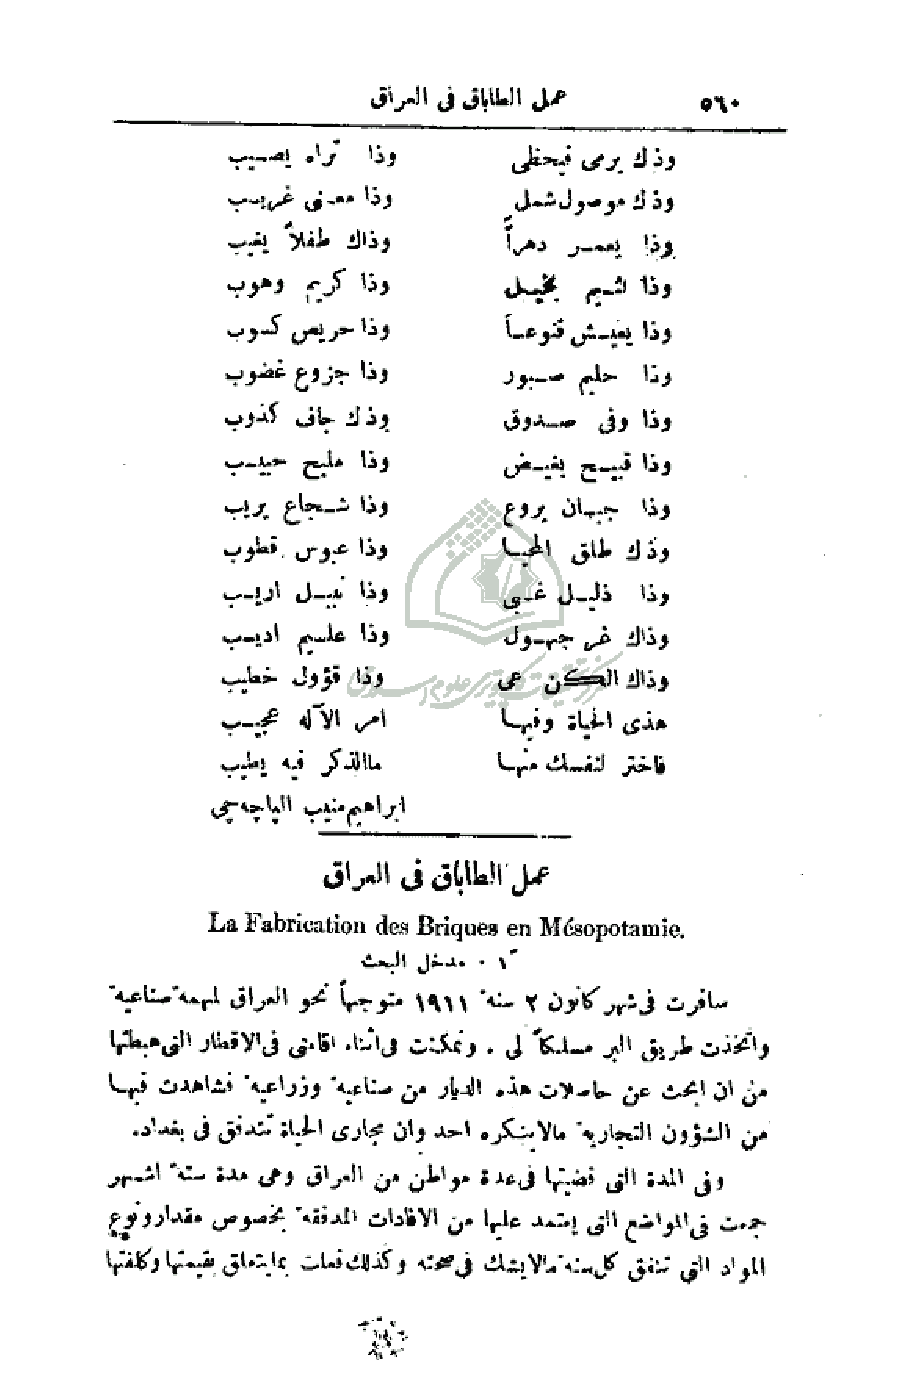 ٥٦٠ عمل الطاباق في العراق
وذك يرمى فيحظى وذا تراه يصيب
وذك موصول شمل وذا معنى غريب
وذا يعمر دهراً وذاك طفلاً يغيب
وذا لئيم بخيل وذا كريم وهوب
وذا يعيش قنوعا وذا حريص كدوب
وذا حليم صبور وذا جزوع غضوب
وذا وفى صدوق وذك جانى كذوب
وذا قبيح بغيض وذا مليح حبيب
وذا جبان يروع وذا شجاع يريب
وذك طلق المحيا وذا عبوس قطوب
وذا ذليل غبى وذا نبيل اريب
وذاك غر جهول وذا عليم اديب
وذاك الكن عى وذا قؤول خطيب
هذى الحياة وفيها امر الآله عجيب
فاختر لنفسك منها ماالذكر فيه يطيب
ابراهيم منيب الپاچه‌چى
عمل الطاباق في العراق
La Fabrication des Briques en Mésopotamie.
١ً . مدخل البحث
سافرت فى شهر كانون ٢ سنة ١٩١١ متوجهاً نحو العراق لمهمة صناعية
واتخذت طريق البر مسلكاً لى . وتمكنت فى اثناء اقامتى فى الاقطار التى هبطتها
من ان ابحث عن حاصلات هذه الديار من صناعية وزراعية فشاهدت فيها
من الشؤون التجارية مالاينكره احد وان مجارى الحياة تتدفق فى بغداد.
وفى المدة التى قضيتها فى عدة مواطن من العراق وهى مدة ستة اشهر
جمعت فى المواضع التى يعتمد عليها من الافادات المدققة بخصوص مقدار ونوع
المواد التى تنفق كل سنة مالايشك فى صحته وكذلك فعلت بمايتعلق بقيمتها وكلفتها